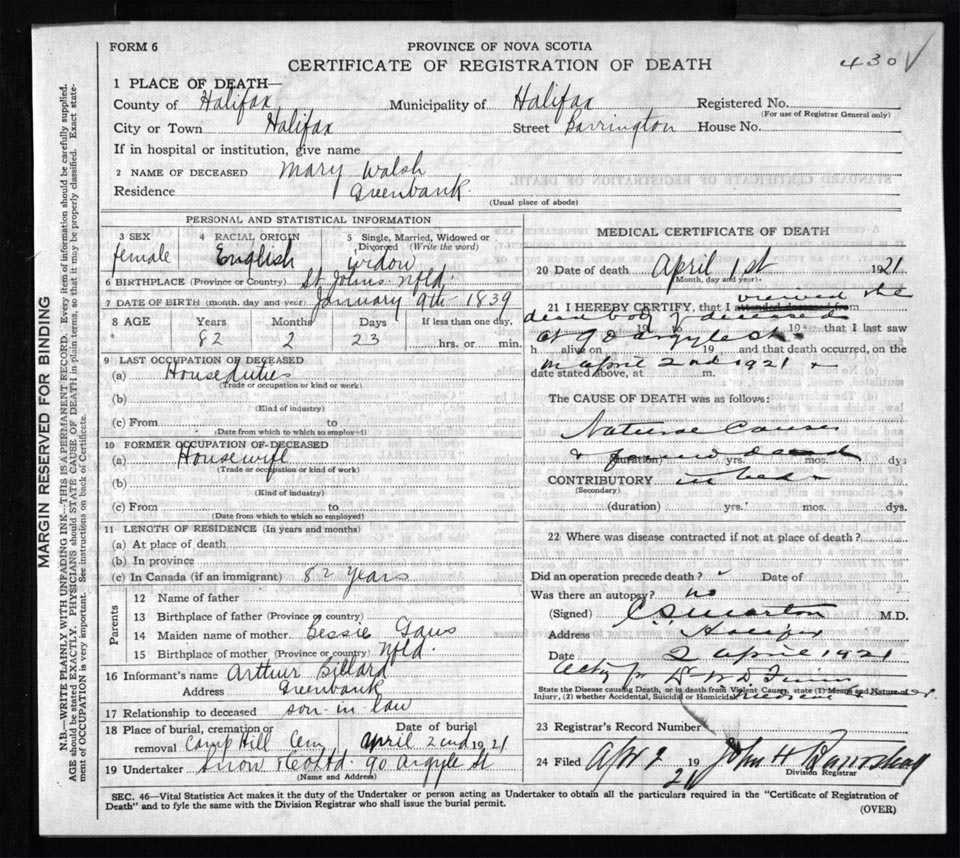 FORM 6
PROVINCE OF NOVA SCOTIA
CERTIFICATE OF REGISTRATION OF DEATH
430 V
1 PLACE OF DEATH—
County of Halifax Municipality of Halifax Registered No.
(For use of Registrar General only)
City or Town Halifax Street Barrington House No.
If in hospital or institution, give name
2 NAME OF DECEASED Mary Walsh
Residence Greenbank.
(Usual place of abode)
PERSONAL AND STATISTICAL INFORMATION
3 SEX 4 RACIAL ORIGIN 5 Single, Married, Widowed or Divorced (Write the word)
female English widow
6 BIRTHPLACE (Province or Country) St Johns Nfld.
7 DATE OF BIRTH (month, day and year) January 9th 1839
8 AGE Years Months Days If less than one day,
82 2 23 hrs. or min.
9 LAST OCCUPATION OF DECEASED
(a) Houseduties
(Trade or occupation or kind or work)
(b)
(Kind of industry)
(c) From to
(Date from which to which so employed)
10 FORMER OCCUPATION OF DECEASED
(a) Housewife
(Trade or occupation or kind of work)
(b)
(Kind of industry)
(c) From to
(Date from which to which so employed)
11 LENGTH OF RESIDENCE (In years and months)
(a) At place of death
(b) In province
(c) In Canada (if an immigrant) 82 years
Parents
12 Name of father
13 Birthplace of father (Province or country)
14 Maiden name of mother Bessie
15 Birthplace of mother (Province or country) Nfld.
16 Informant's name Arthur Billard
Address Greenbank
17 Relationship to deceased son in law
18 Place of burial, cremation or removal Camp Hill Cem Date of burial April 2nd 1921
19 Undertaker Snow & Co Ltd. 90 Argyle St
(Name and Address)
MEDICAL CERTIFICATE OF DEATH
20 Date of death April 1st 1921
(Month, day and year)
21 I HEREBY CERTIFY, that I attended deceased from viewed the
dead body of deceased
19 to 19 that I last saw
at 90 argyle st.
h alive on 19 and that death occurred, on the
on april 2nd 1921
date stated above, at m.
The CAUSE OF DEATH was as follows:
Natural Causes
& found dead
(duration) yrs. mos. dys
CONTRIBUTORY in bed
(Secondary)
(duration) yrs. mos. dys.
22 Where was disease contracted if not at place of death?
Did an operation precede death? Date of
Was there an autopsy? no
(Signed) M.D.
Address Halifax
Date 2 april 1921
Acty for Dr W D Finn
State the Disease causing Death, or in death from Violent Cause, state (1) Means and Nature of Injury, (2) whether Accidental, Suicidal or Homicidal
23 Registrar's Record Number
24 Filed Apr 2 1921 John H
Division Registrar
SEC. 46—Vital Statistics Act makes it the duty of the Undertaker or person acting as Undertaker to obtain all the particulars required in the "Certificate of Registration of
Death" and to fyle the same with the Division Registrar who shall issue the burial permit.
(OVER)
MARGIN RESERVED FOR BINDING
N.B.—WRITE PLAINLY WITH UNFADING INK—THIS IS A PERMANENT RECORD. Every item of information should be carefully supplied.
AGE should be stated EXACTLY. PHYSICIANS should STATE CAUSE OF DEATH in plain terms, so that it may be properly classified. Exact statement of OCCUPATION is very important. See instructions on back of Certificate.